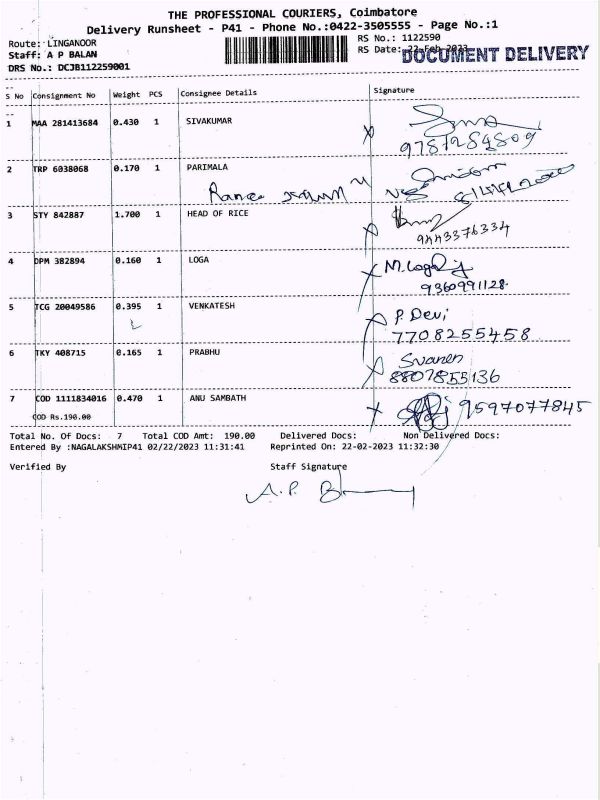 THE PROFESSIONAL COURIERS, Coimbatore
Delivery Runsheet - P41 - Phone No.:0422-3505555 - Page No.:1
Route: LINGANOOR
RS No.: 1122590
Staff: A P BALAN
RS Date: 22-Feb-2023
DOCUMENT DELIVERY
DRS No.: DCJB112259001
S No Consignment No Weight PCS Consignee Details Signature
1 MAA 281413684 0.430 1 SIVAKUMAR
9787284809
2 TRP 6038068 0.170 1 PARIMALA
3 STY 842887 1.700 1 HEAD OF RICE
9443376334
4 DPM 382894 0.160 1 LOGA M.Loga
9360991128.
5 TCG 20049586 0.395 1 VENKATESH P. Devi
7708255458
6 TKY 408715 0.165 1 PRABHU
8807855136
7 COD 1111834016 0.470 1 ANU SAMBATH 9597077845
COD Rs.190.00
Total No. Of Docs: 7 Total COD Amt: 190.00 Delivered Docs: Non Delivered Docs:
Entered By :NAGALAKSHMIP41 02/22/2023 11:31:41 Reprinted On: 22-02-2023 11:32:30
Verified By Staff Signature
A.P. B